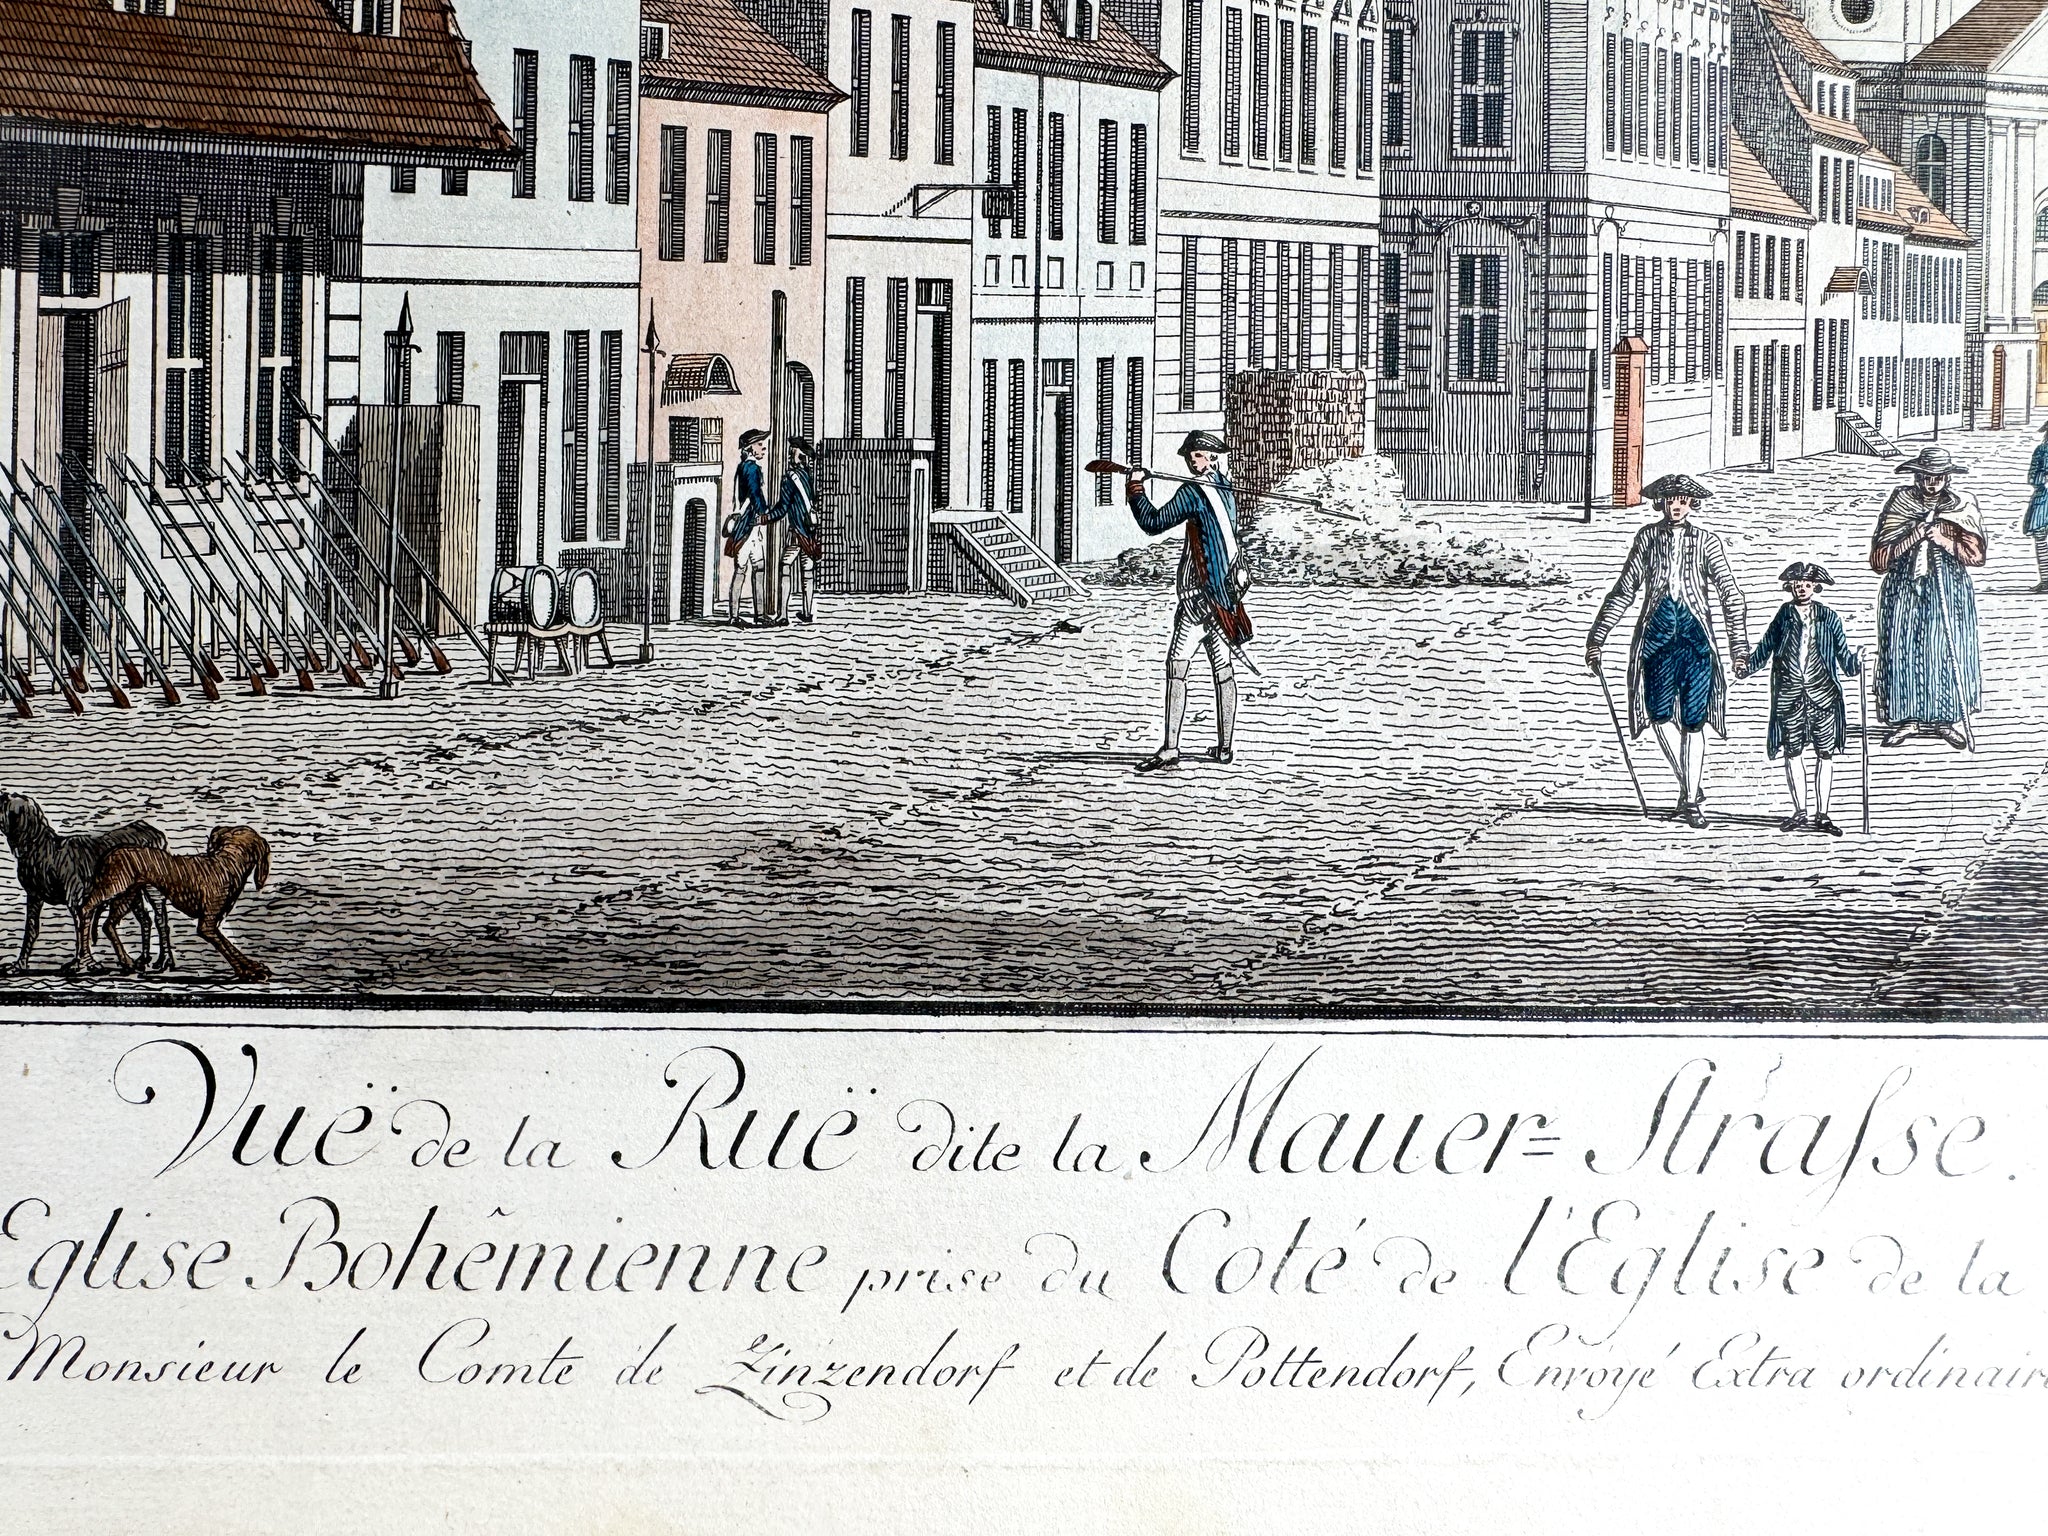 Vuë de la Ruë dite la Mauer= Straſse.
Eglise Bohêmienne prise du Coté de l'Eglise de la
Monsieur le Comte de Zinzendorf et de Pottendorf, Envoyé Extra ordinaire